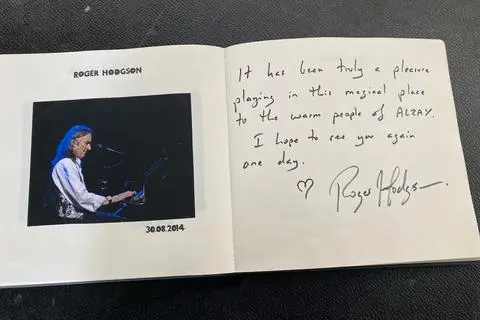 ROGER HODGSON
30.08.2014
It has been truly a pleasure
playing in this magical place
to the warm people of ALZAY.
I hope to see you again
one day.
♡ Roger Hodgson